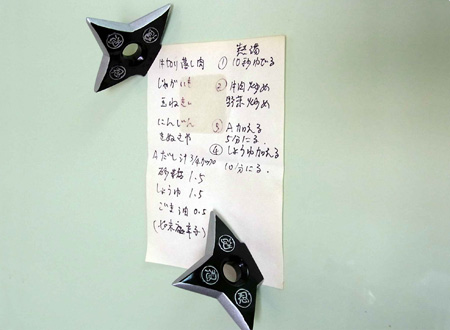 牛切り落し肉
じゃがいも
玉ねぎ
にんじん
きぬさや
Aだし汁 3/4カップ
砂糖 1.5
しょうゆ 1.5
ごま油 0.5
① 10秒ゆでる
② 牛肉炒め
野菜炒め
③ A加える
5分にる
④ しょうゆ加える
10分にる.